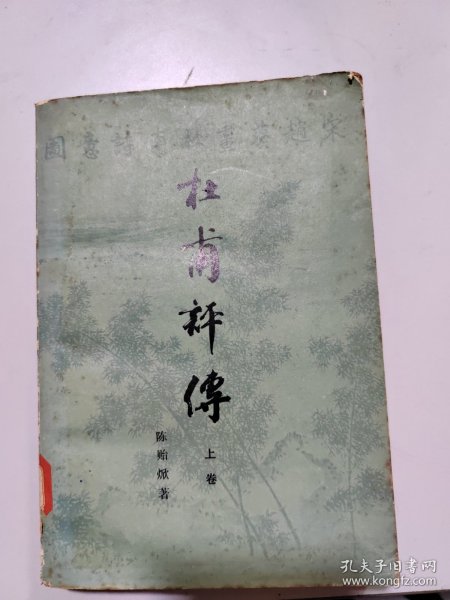 宋趙葵畫杜甫詩意圖
杜甫評傳
上卷
陈贻焮著
孔夫子旧书网
www.kongfz.com